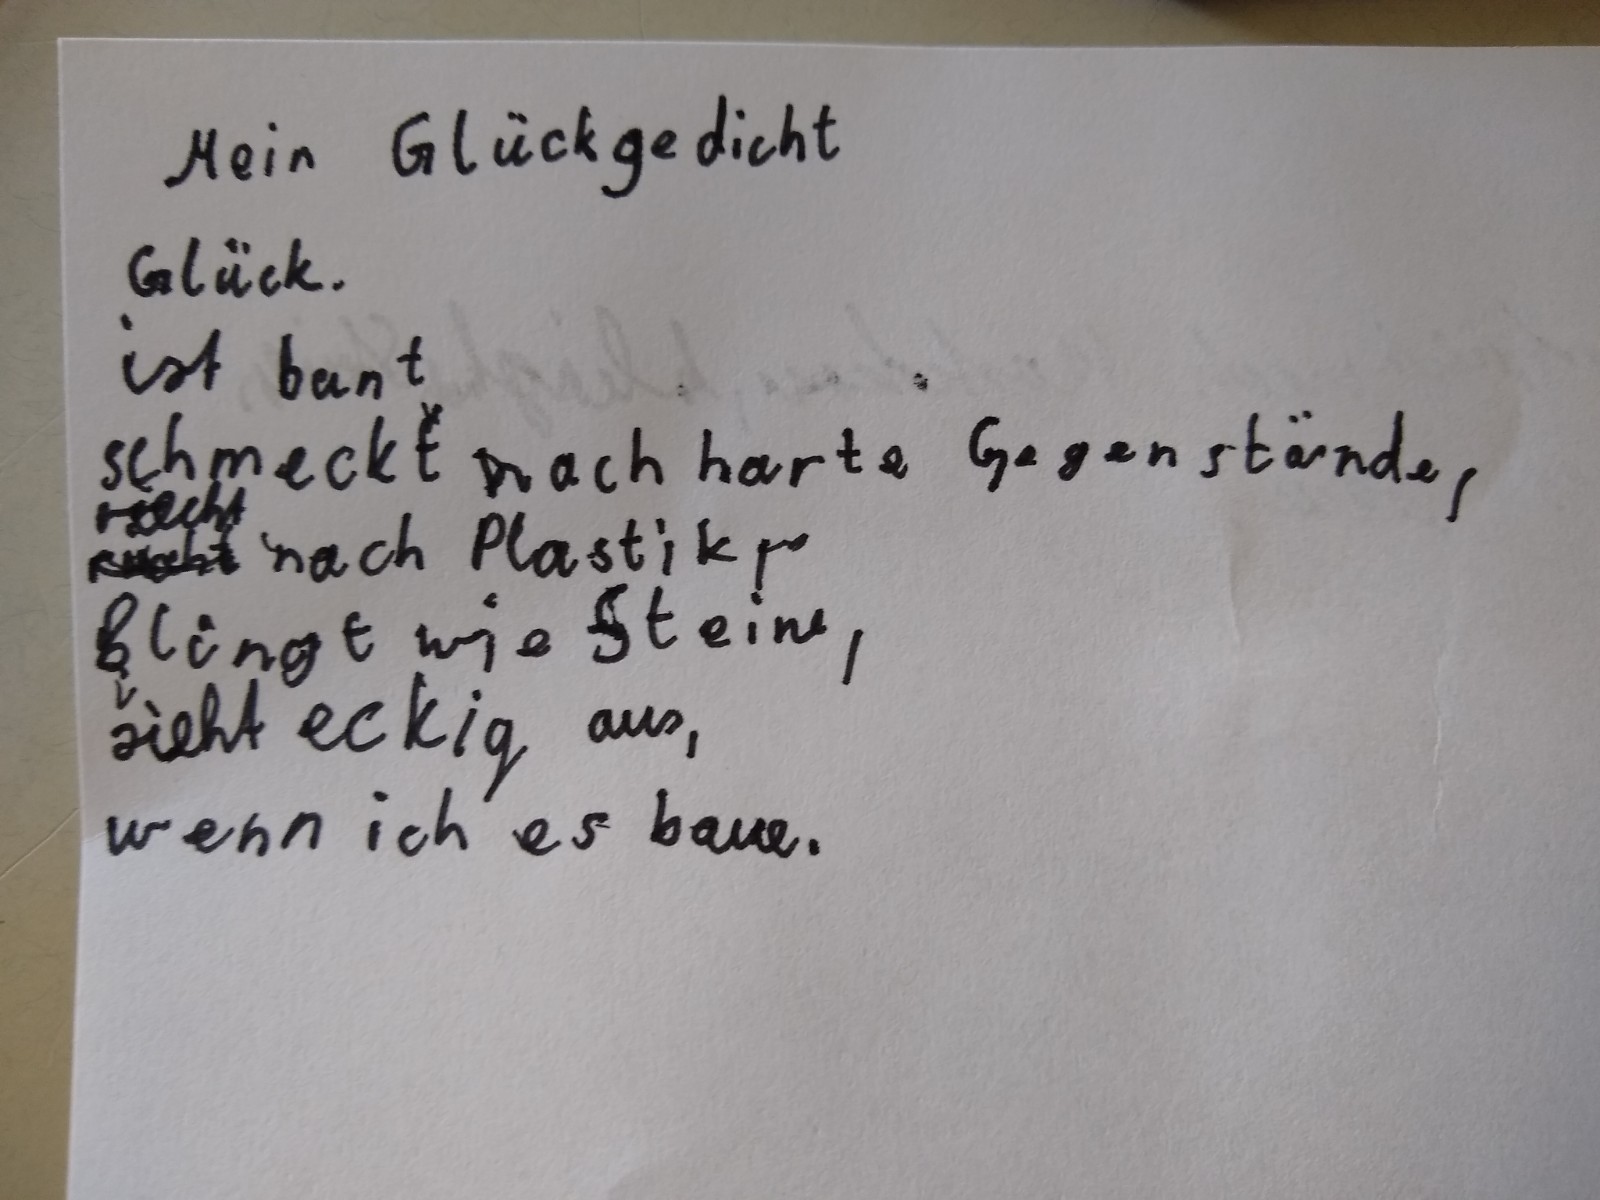 Mein Glückgedicht
Glück.
ist bunt
schmeckt nach harte Gegenstände,
riecht
nach Plastik,
klingt wie Steine,
sieht eckig aus,
wenn ich es baue.